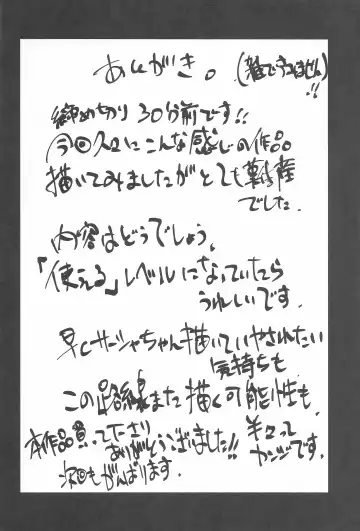 あとがき。
(雑ですいません)!!
締め切り30分前です!!
今回久々にこんな感じの作品
描いてみましたがとても難産
でした.
内容はどうでしょう.
「使える」レベルになっていたら
うれしいです.
早くサーシャちゃん描いていやされたい
気持ちも.
この路線また描く可能性も.
半々って
カンジです.
本作品買って下さり
ありがとうございました!!
次回もがんばります.